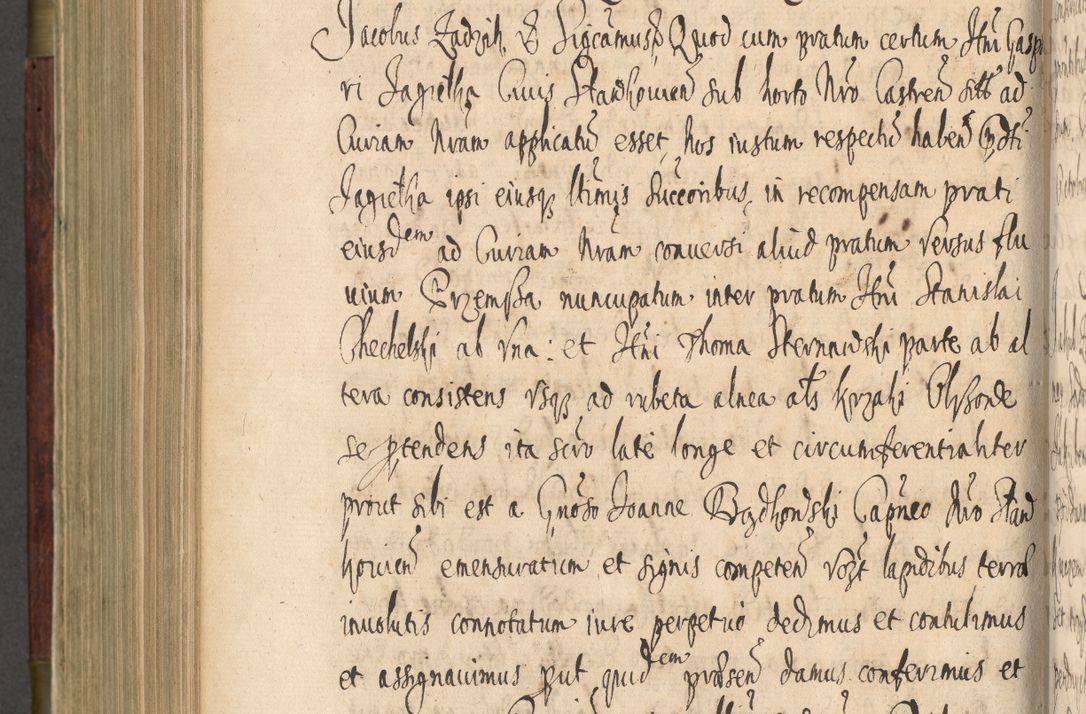 Jacobus Zadzik, & Significamus, Quod cum pratum certum Hni Gaspa
ri Jagiełka Civis Slawkovien sub horto Nro Castren sitt ad
Curiam Nram applicatū esset, Nos iustum respectū haben
Jagiełka ipsi eiusq ltimis Succoribus, in recompensam prati
eiusdem ad Curiam Nram conversi aliud pratum Versus flu
vium Przemsza nuncupatum inter pratum Hni Stanislai
Chechelski ab Vna: et Hni Thoma Sternawski parte ab al
tera consistens Vsq ad rubeta alnea als krzaki Olszone
se ptendens ita scro late longe et circumferentialiter
prout sibi est a Gnoso Joanne Capneo Nro Slaw
kovien emensuratum et signis competen lapidibus terra
involutis connotatum iure perpetuo dedimus et contulimus
et assignavimus put quidem prasen damus conferimus et